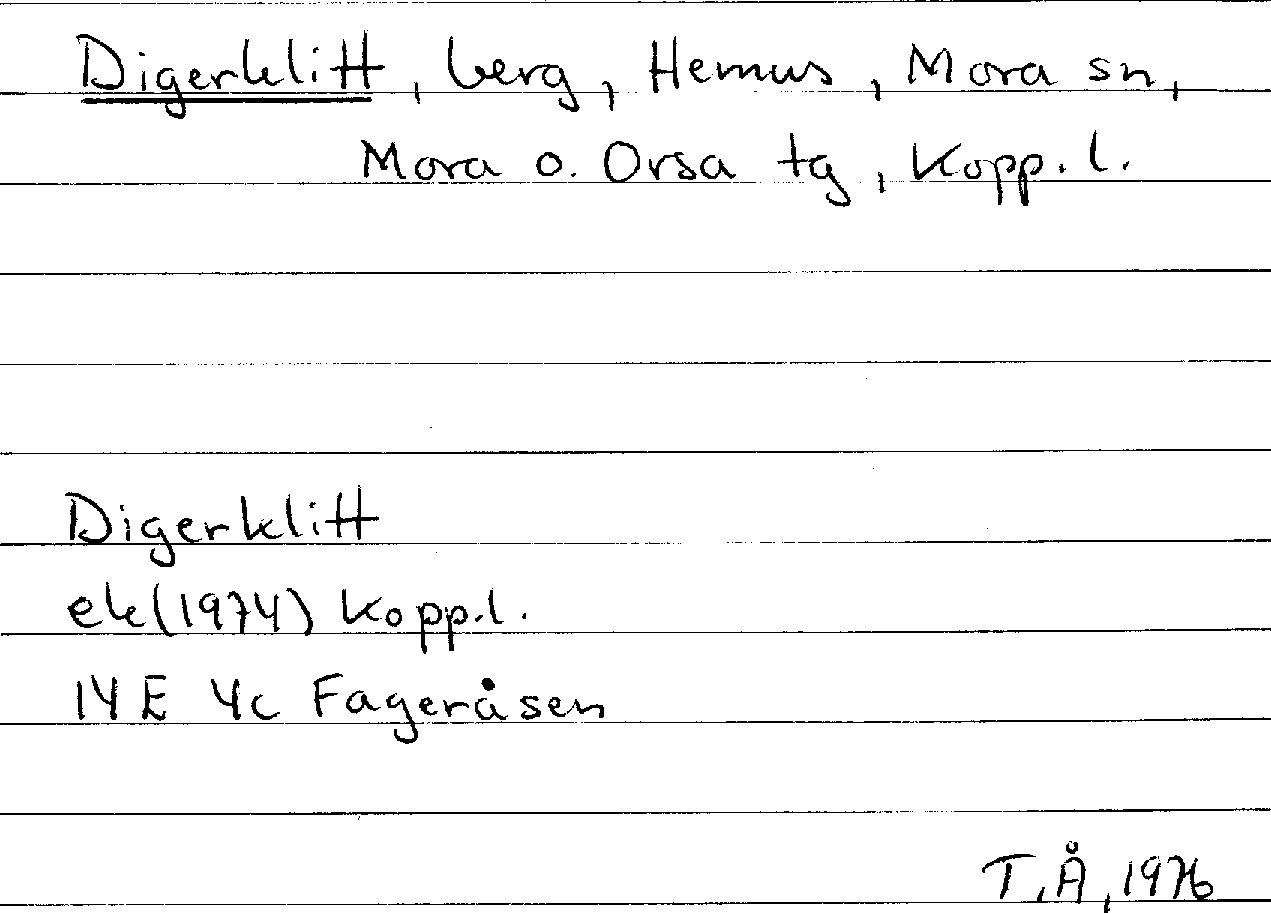 Digerklitt, berg, Hemus, Mora sn,
Mora o. Orsa tg, Kopp. l.
Digerklitt
ek(1974) Kopp.l.
14E 4c Fageråsen
T.Å, 1976